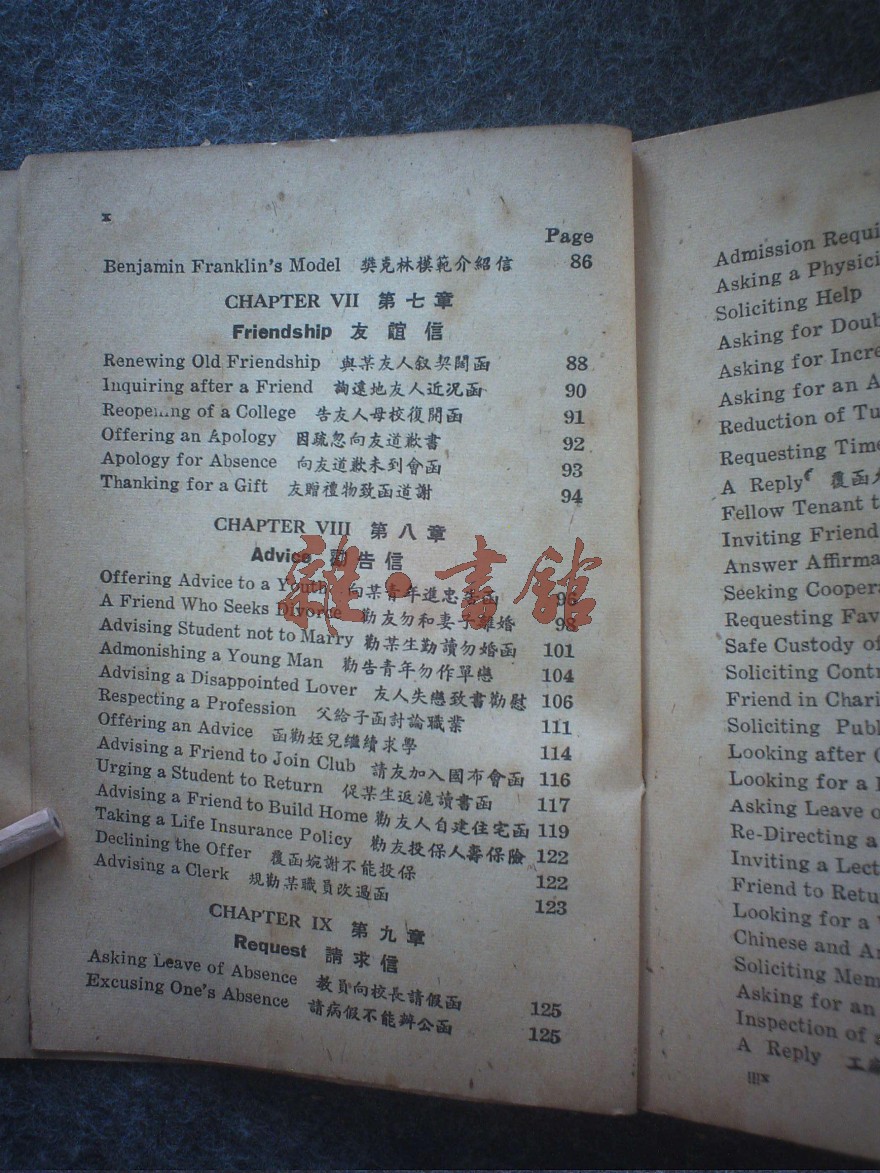 x
Page
Benjamin Franklin's Model 樊克林模範介紹信 86
CHAPTER VII 第七章
Friendship 友誼信
Renewing Old Friendship 與某友人叙契闊函 88
Inquiring after a Friend 詢遠地友人近況函 90
Reopening of a College 告友人母校復開函 91
Offering an Apology 因疏忽向友道歉書 92
Apology for Absence 向友道歉未到會函 93
Thanking for a Gift 友贈禮物致函道謝 94
CHAPTER VIII 第八章
Advice 勸告信
Offering Advice to a Youth 向某青年進忠告函 96
A Friend Who Seeks Divorce 勸友勿和妻子離婚 98
Advising Student not to Marry 勸某生勤讀勿婚函 101
Admonishing a Young Man 勸告青年勿作單戀 104
Advising a Disappointed Lover 友人失戀致書勸慰 106
Respecting a Profession 父給子函討論職業 111
Offering an Advice 函勸姪兒繼續求學 114
Advising a Friend to Join Club 請友加入國布會函 116
Urging a Student to Return 促某生返滬讀書函 117
Advising a Friend to Build Home 勸友人自建住宅函 119
Taking a Life Insurance Policy 勸友投保人壽保險 122
Declining the Offer 覆函婉謝不能投保 122
Advising a Clerk 規勸某職員改過函 123
CHAPTER IX 第九章
Request 請求信
Asking Leave of Absence 教員向校長請假函 125
Excusing One's Absence 請病假不能辦公函 125
雜·書館
Admission Requi
Asking a Physici
Soliciting Help
Asking for Doub
Asking for Incre
Asking for an A
Reduction of Tu
Requesting Time
A Reply 覆函
Fellow Tenant t
Inviting Friend
Answer Affirma
Seeking Coopera
Requesting Fav
Safe Custody of
Soliciting Contr
Friend in Chari
Soliciting Publ
Looking after
Looking for a
Asking Leave o
Re-Directing a
Inviting a Lect
Friend to Retu
Looking for a
Chinese and A
Soliciting Mem
Asking for an
Inspection of a
A Reply 工
iiix